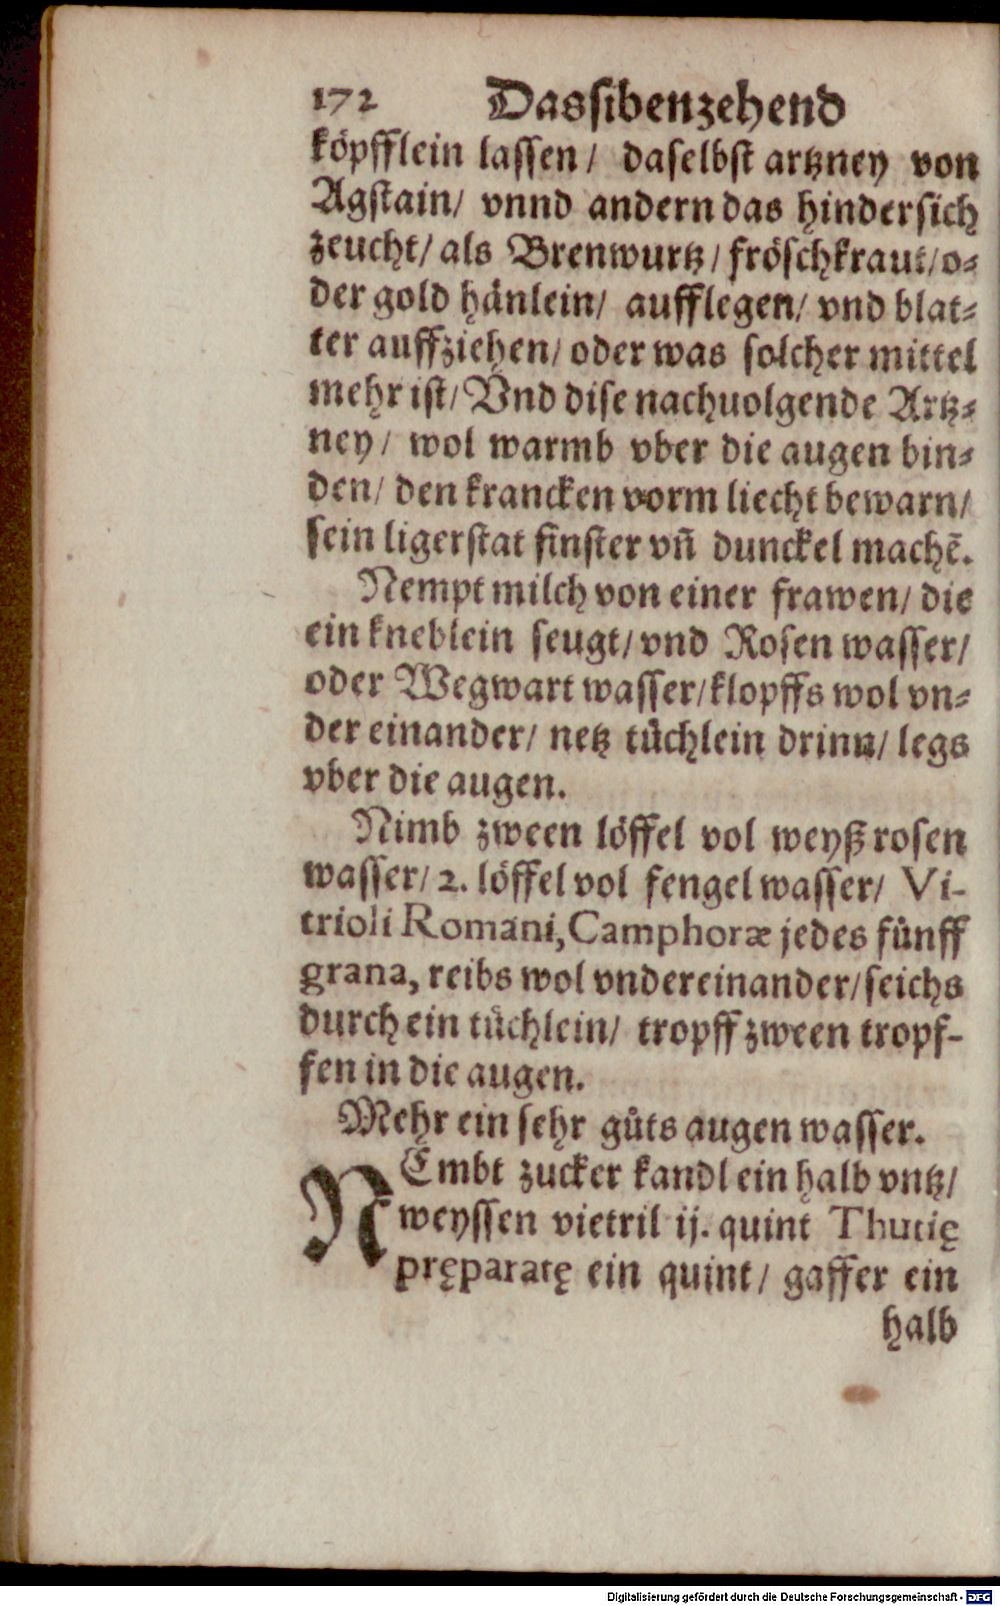 172 Das sibenzehend
köpfflein lassen/ daselbst artzney von
Agstain/ vnnd andern das hindersich
zeucht/ als Brenwurtz/ fröschkraut/ o-
der gold hänlein/ aufflegen/ vnd blat-
ter auffziehen/ oder was solcher mittel
mehr ist/ Vnd dise nachuolgende Artz-
ney/ wol warmb vber die augen bin-
den/ den krancken vorm liecht bewarn/
sein ligerstat finster vn̄ dunckel machē.
Nempt milch von einer frawen/ die
ein kneblein seugt/ vnd Rosen wasser/
oder Wegwart wasser/ klopffs wol vn-
der einander/ netz tüchlein drinn/ legs
vber die augen.
Nimb zween löffel vol weyß rosen
wasser/ 2. löffel vol fengel wasser/ Vi-
trioli Romani, Camphoræ jedes fünff
grana, reibs wol vndereinander/ seichs
durch ein tüchlein/ tropff zween tropf-
fen in die augen.
Mehr ein sehr gůts augen wasser.
NEmbt zucker kandl ein halb vntz/
weyssen vietril ij. quint Thutię
pręparatę ein quint/ gaffer ein
halb
Digitalisierung gefördert durch die Deutsche Forschungsgemeinschaft - DFG